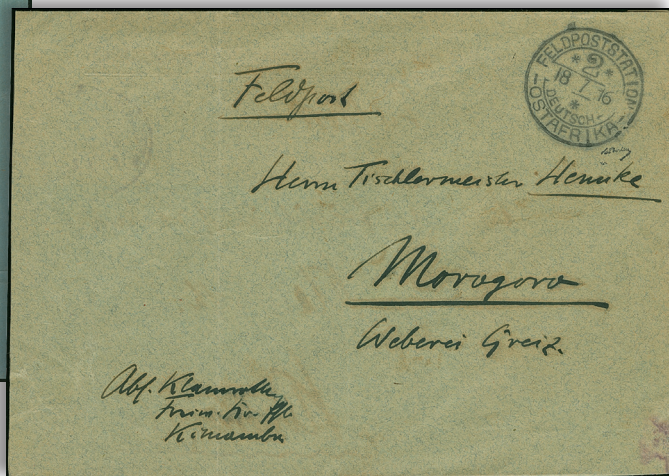 FELDPOSTSTATION
* 2 *
18 / 7 16
*
DEUTSCH-
-OSTAFRIKA-
Feldpost
Herrn Tischlermeister Hennike
Morogoro
Weberei Greiz.
Abs. Klamroth
Kimamba